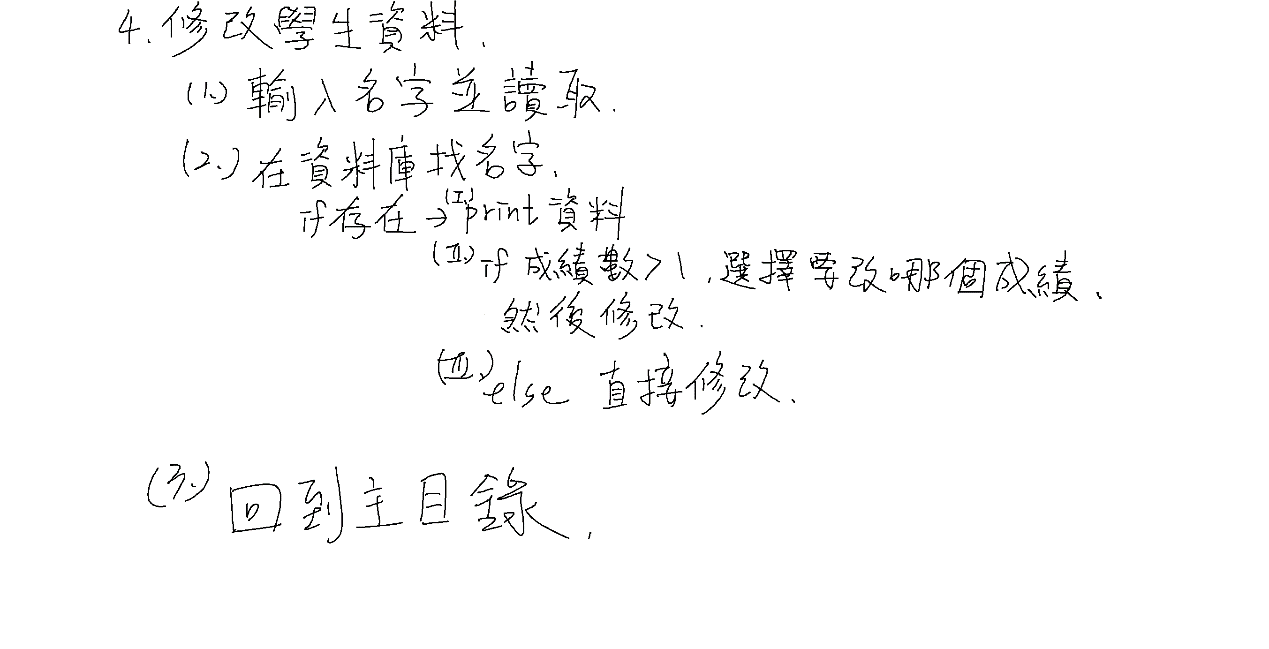 4. 修改學生資料.
(1.) 輸入名字並讀取.
(2.) 在資料庫找名字.
if存在→(I.)print資料
(II.) if 成績數>1, 選擇要改哪個成績.
然後修改.
(III.) else 直接修改.
(3.) 回到主目錄.